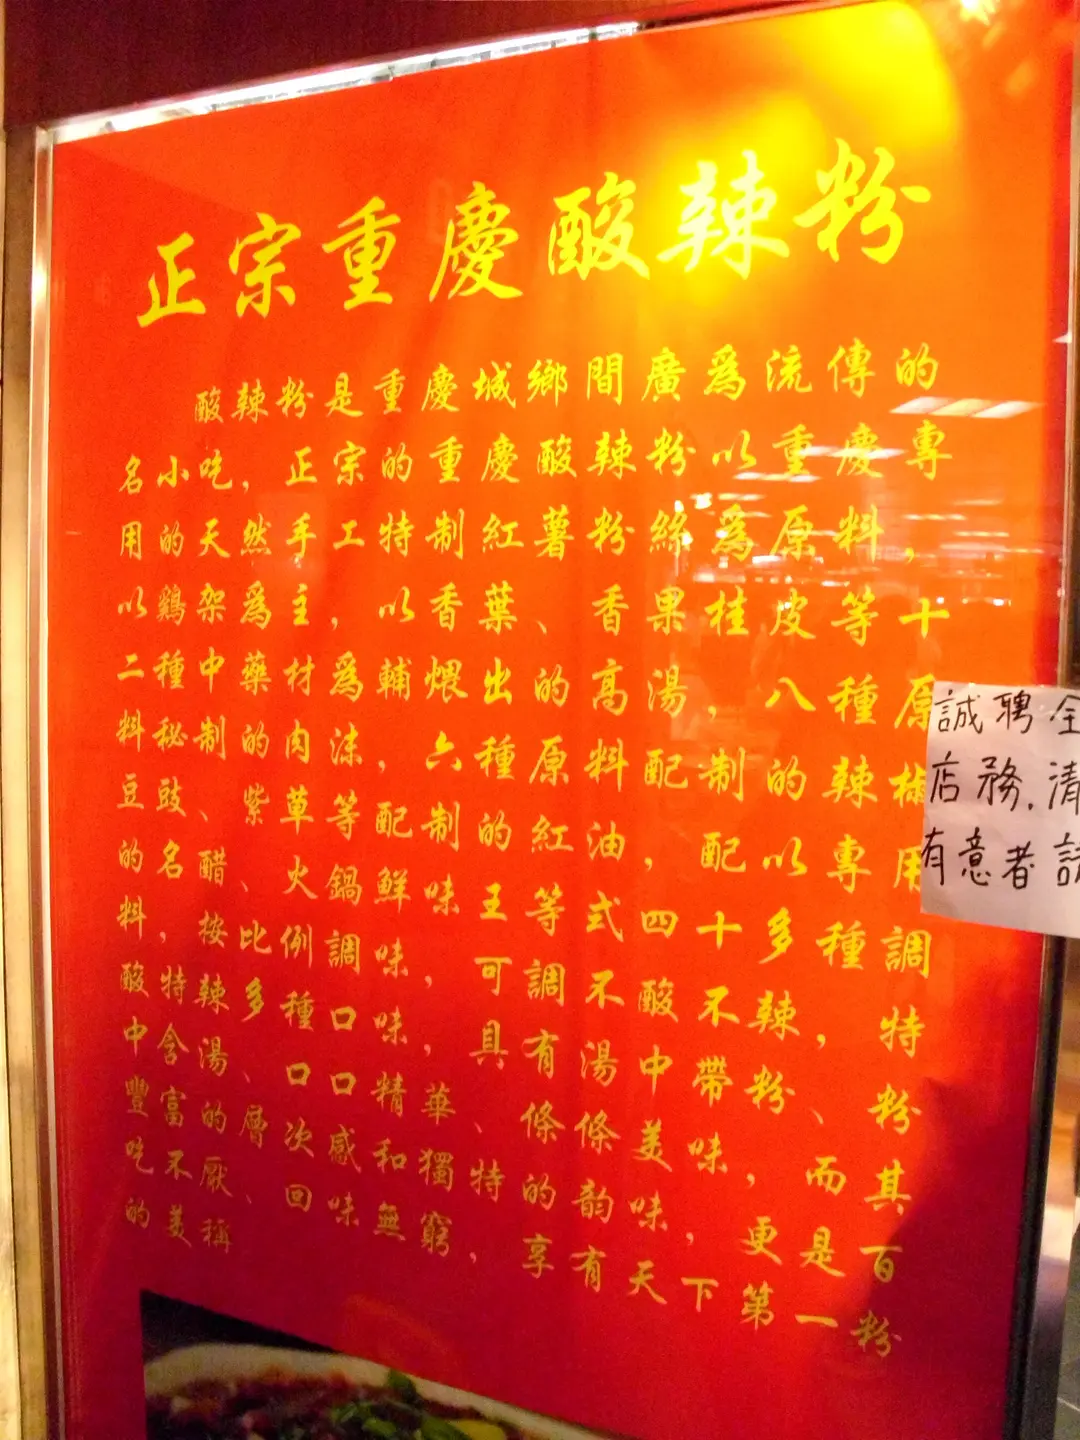 正宗重慶酸辣粉
酸辣粉是重慶城鄉間廣爲流傳的
名小吃，正宗的重慶酸辣粉以重慶專
用的天然手工特制紅薯粉絲爲原料，
以鷄架爲主，以香葉、香果桂皮等十
二種中藥材爲輔煨出的高湯，八種原
料秘制的肉沫，六種原料配制的辣椒
豆豉、紫草等配制的紅油，配以專用
的名醋、火鍋鮮味王等式四十多種調
料，按比例調味，可調不酸不辣，特
酸特辣多種口味，具有湯中帶粉、粉
中含湯、口口精華、條條美味，而其
豐富的層次感和獨特的韵味，更是百
吃不厭、回味無窮，享有天下第一粉
的美稱
誠聘全
店務.清
有意者